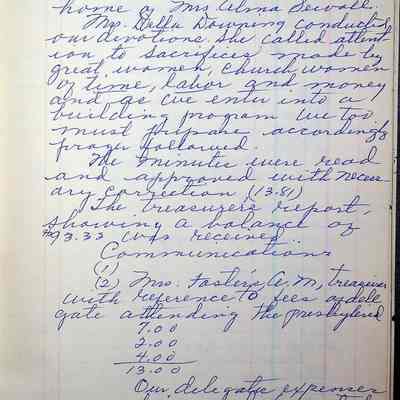 home of Mrs Alma Sewall.
Mrs. Della Downing conducted
our devotions. She called attent
ion to sacrifices made by
great women, church women
of time, labor and money
and as we enter into a
building program we too
must prepare accordingly
prayer followed.
The minutes were read
and approved with necess
ary correction (13.81)
The treasurer's report,
showing a balance of
93.33 was received.
Communications
(1)
(2) Mrs. Foster, treasurer
with reference to fees of dele
gate attending the presbyterial
7.00
2.00
4.00
13.00
Our delegate expenses